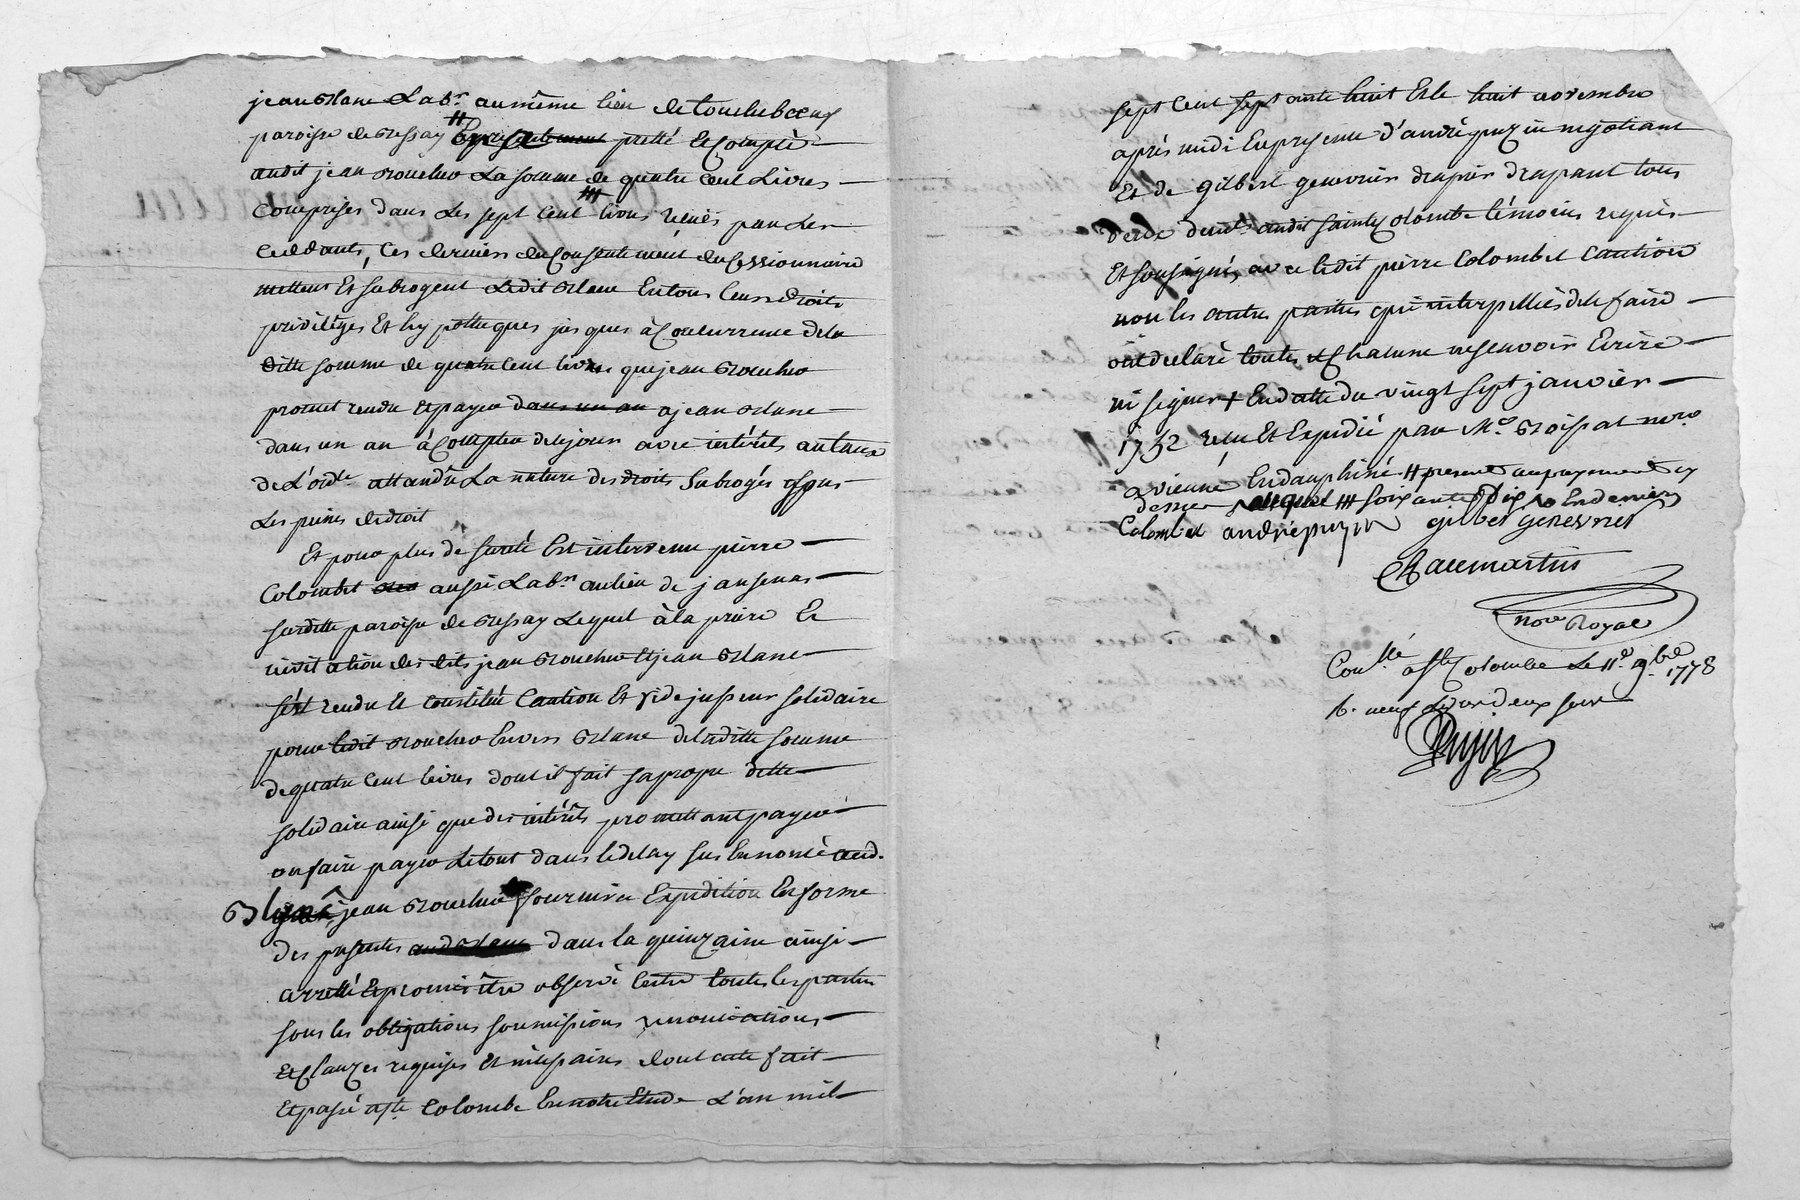 jean Blanc Labr. au même lieu de touchebœuf
paroisse de Bessay # presentement pretté Et Compté
audit jean Boucher La somme de quatre Cent Livres
Comprises dans Les sept Cent ### livres par Les
Ceddants, Ces derniers du Consentement du Cessionnaire
mettent Et subrogent Ledit Blanc En tous leurs droits
privilèges Et hypotteques jusques à Concurrence de la
ditte somme de quatre Cent livres que jean Boucher
promet rendre Et payer dans un an a jean Blanc
dans un an à Compter de ce jour avec intérêts au taux
de L'ordce attandû La nature des droits subrogés
Les peines de droit
Et pour plus de sureté Est intervenu pierre
Colombet aussi Labr. au lieu de
susditte paroisse de Bessay Lequel à la prière Et
invitation des dits jean Boucher Et jean Blanc
s'est rendu Et Constitué Caution Et fidejusseur solidaire
pour ledit Boucher Envers Blanc de laditte somme
de quatre Cent livres dont il fait sa propre dette
solidaire ainsi que des intérêts promettant payer
ou faire payer Le tout dans le delay sus Enoncé aud.
Blanc jean Boucher fournira Expedition En forme
des presentes dans la quinzaine ainsi
arretté Et promis être observé Entre toutes les parties
sous les obligations soumissions renonciations
Et Clauzes requises Et nécessaires dont acte fait
Et passé a Ste Colombe En notre Etude L'an mil
sept Cent septante huit Et le huit novembre
après midi En presence d'andré puzin negotiant
Et de Gilbert genevrier drapier drapant tous
deux audit sainte Colombe témoins requis
Et sousignés, avec ledit pierre Colombet Caution
non les autres parties qui interpellées de le faire
ont declaré toutes Et Chacune ne sçavoir Ecrire
ni signer + En datte du vingt sept janvier
1752 reçu Et Expedié par Me. Boissat nore.
a vienne En dauphiné # present au payement cy
dessus ### soixante Dix
Colombet andré puzin gilbet genevrier
Chaumartin
nore Royal
Conllé a Ste Colombe Le 11e. 9bre 1778
Puzin